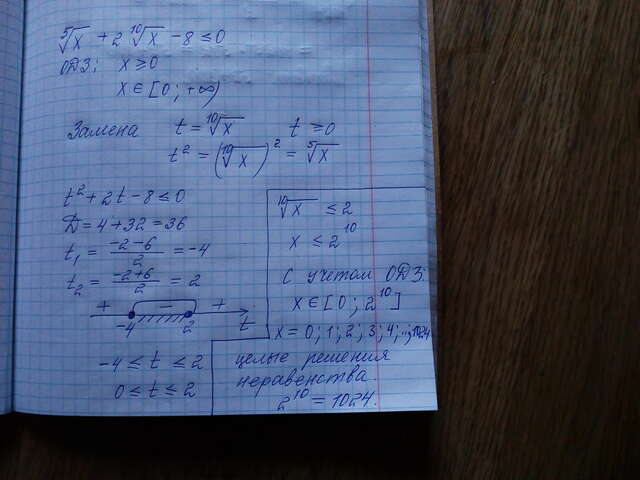 ⁵√x + 2 ¹⁰√x - 8 ≤ 0
ОДЗ: x ≥ 0
x ∈ [0; +∞)
Замена t = ¹⁰√x t ≥ 0
t² = (¹⁰√x)² = ⁵√x
t² + 2t - 8 ≤ 0
D = 4 + 32 = 36
t₁ = (-2-6)/2 = -4
t₂ = (-2+6)/2 = 2
+ - +
-4 2 t
-4 ≤ t ≤ 2
0 ≤ t ≤ 2
¹⁰√x ≤ 2
x ≤ 2¹⁰
С учетом ОДЗ:
x ∈ [0; 2¹⁰]
x = 0; 1; 2; 3; 4; ...; 1024
целые решения
неравенства.
2¹⁰ = 1024.